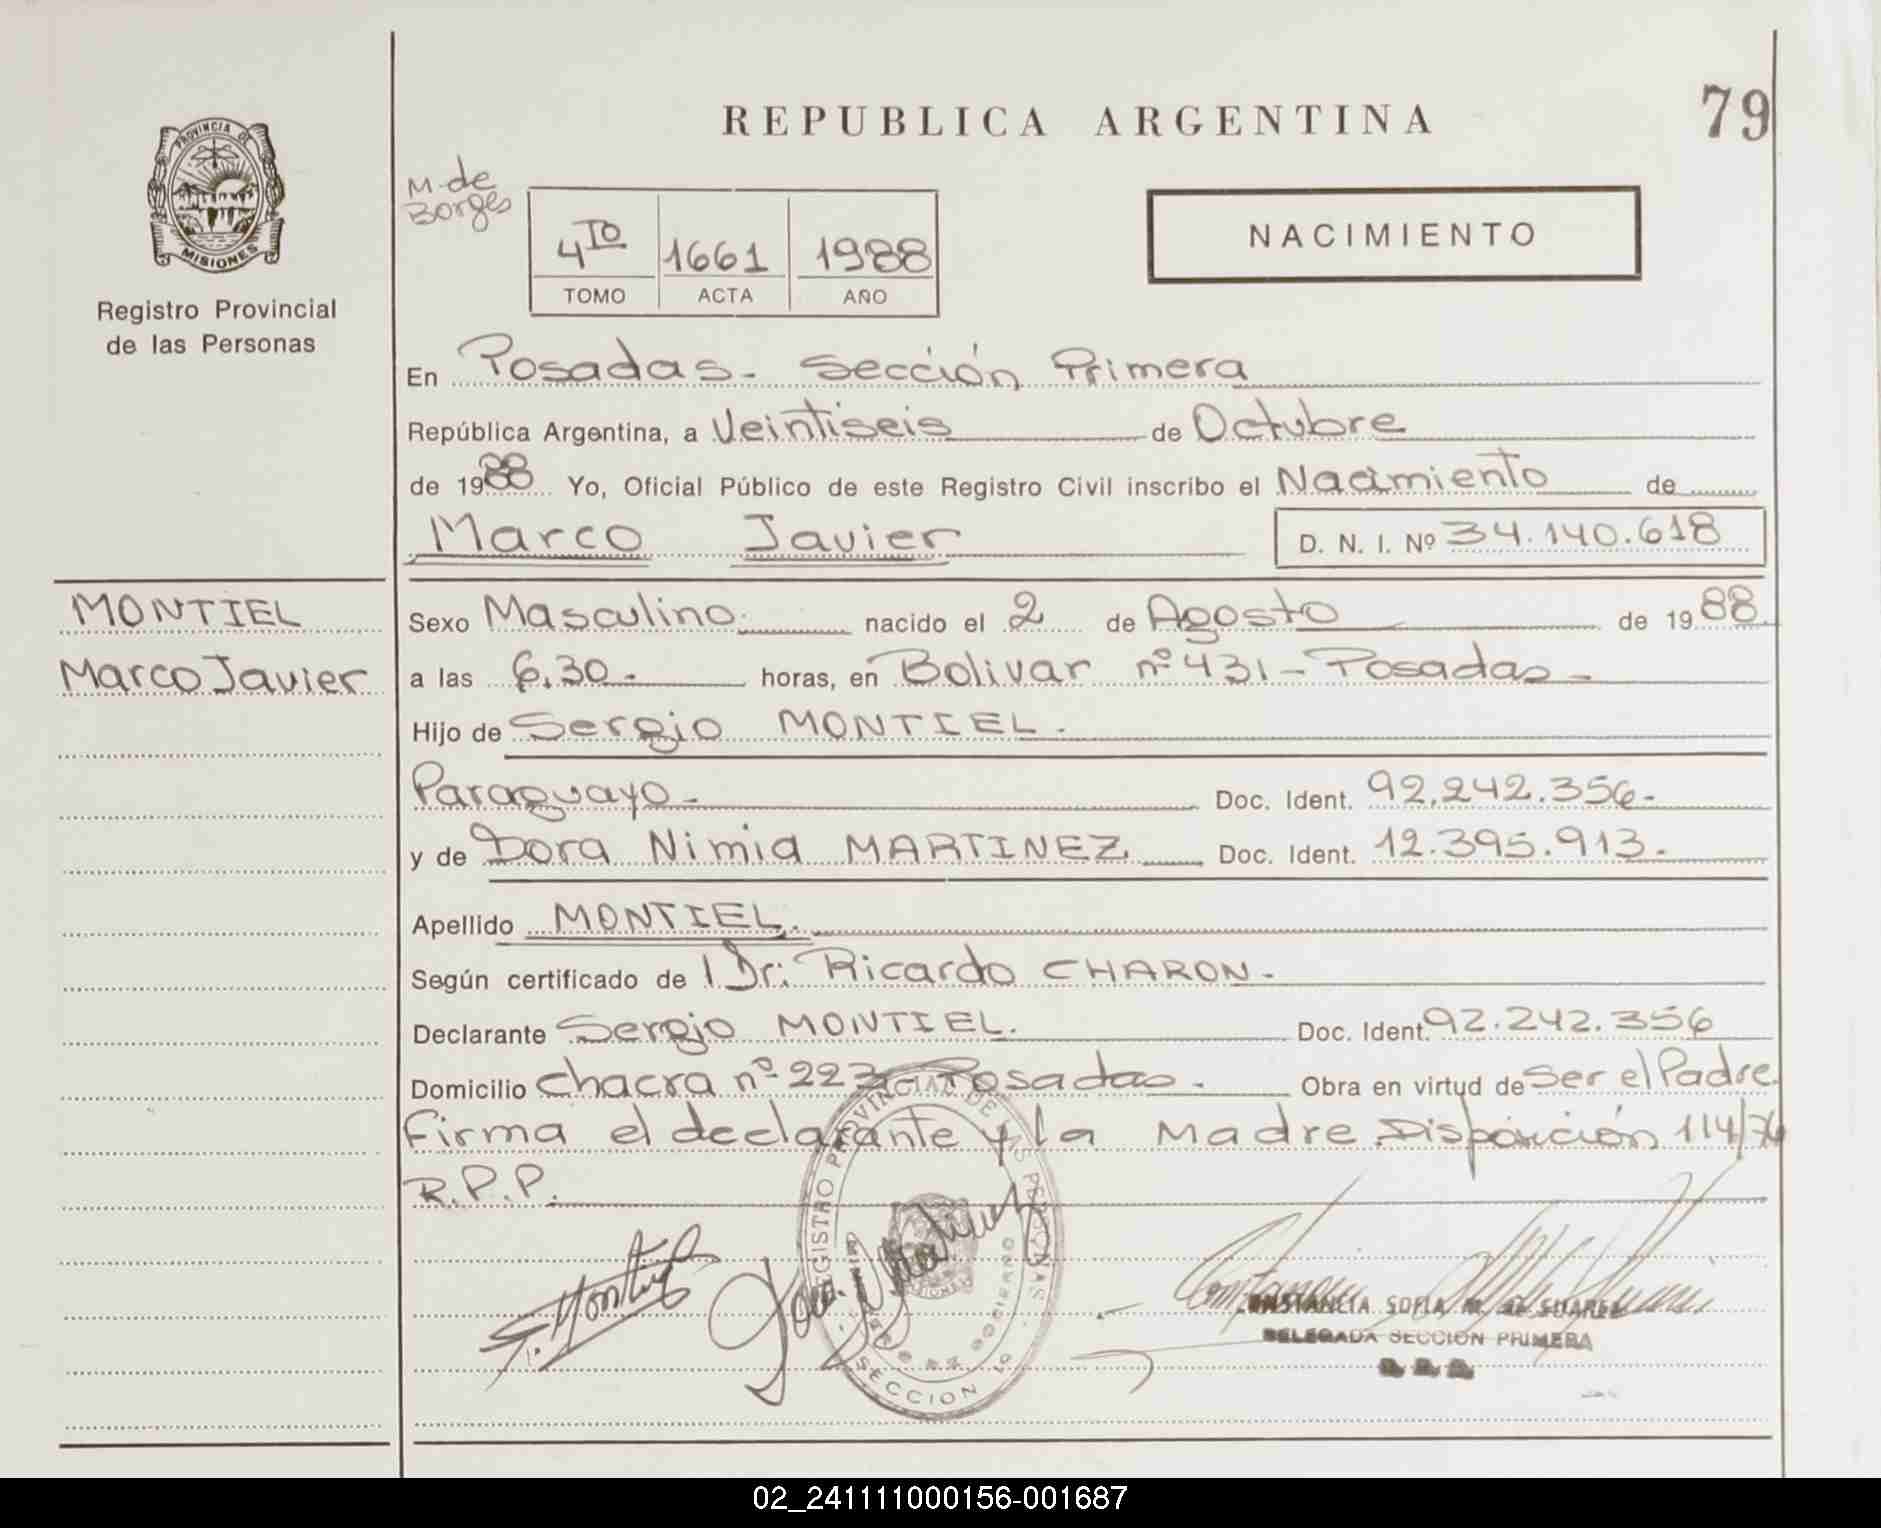 REPUBLICA ARGENTINA
79
PROVINCIA DE
MISIONES
Registro Provincial
de las Personas
M. de
Borges
4TO 1661 1988
TOMO ACTA AÑO
NACIMIENTO
En Posadas - Sección Primera
República Argentina, a Veintiseis de Octubre
de 1988 Yo, Oficial Público de este Registro Civil inscribo el Nacimiento de
Marco Javier D. N. I. Nº 34.140.618
MONTIEL
Marco Javier
Sexo Masculino. nacido el 2 de Agosto de 1988
a las 6.30.- horas, en Bolivar nº 431 - Posadas -
Hijo de Sergio MONTIEL.
Paraguayo - Doc. Ident. 92.242.356-
y de Dora Nimia MARTINEZ Doc. Ident. 12.395.913.-
Apellido MONTIEL.
Según certificado de l Dr: Ricardo CHARON.-
Declarante Sergio MONTIEL. Doc. Ident. 92.242.356
Domicilio chacra nº 223 - Posadas. Obra en virtud de Ser el Padre.
Firma el declarante y la Madre Disposición 114/76
R.P.P.
REGISTRO PROVINCIAL DE LAS PERSONAS
SECCION 1º
S. Montiel
CONSTANCIA SOFIA M. DE SUAREZ
DELEGADA SECCION PRIMERA
02_241111000156-001687